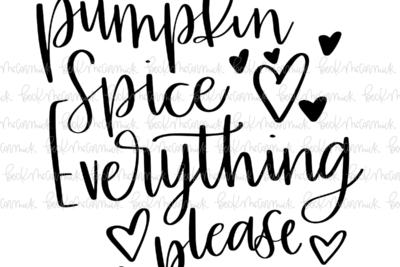 pumpkin
Spice
Everything
please